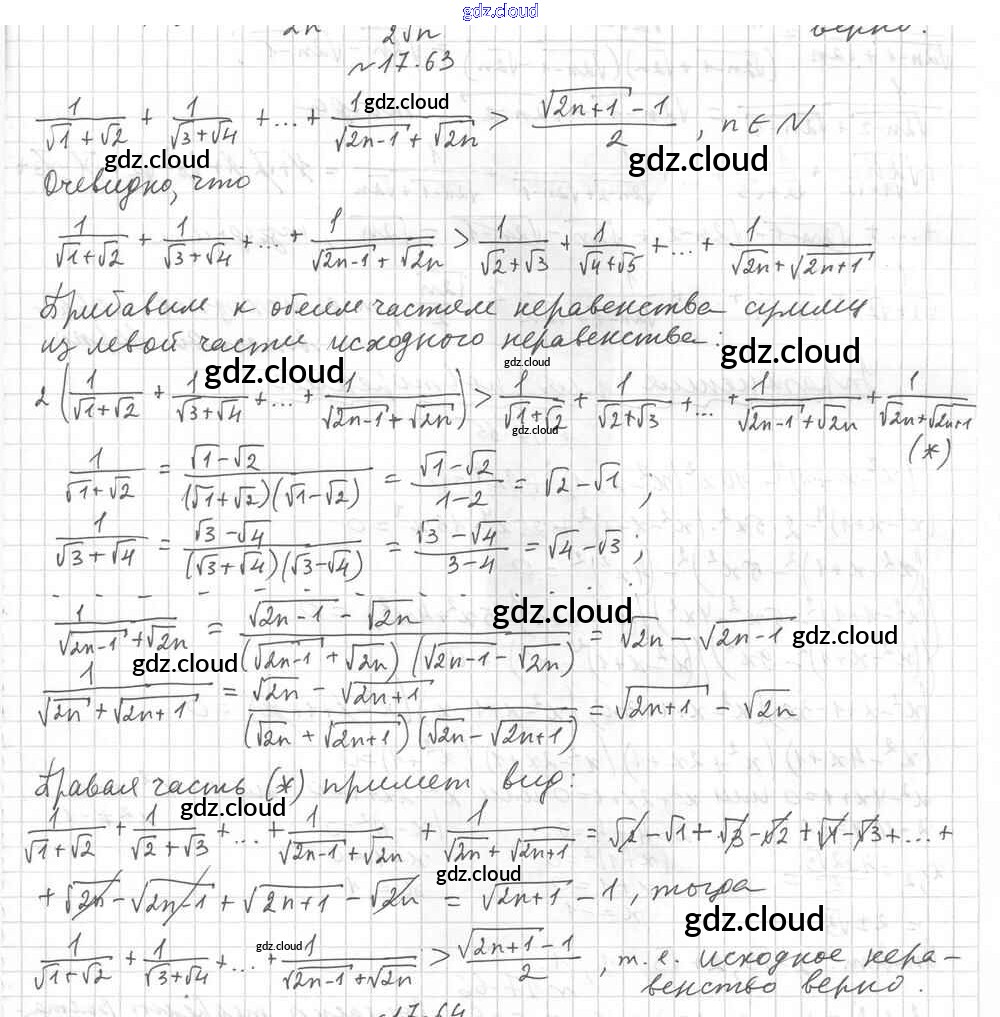 gdz.cloud
2n 2√n верно.
№17.63
1/(√1+√2) + 1/(√3+√4) + ... + 1/(√2n-1 + √2n) > (√2n+1 - 1)/2 , n ∈ N
gdz.cloud
gdz.cloud
gdz.cloud
Очевидно, что
1/(√1+√2) + 1/(√3+√4) + ... + 1/(√2n-1 + √2n) > 1/(√2+√3) + 1/(√4+√5) + ... + 1/(√2n + √2n+1)
Прибавим к обеим частям неравенства сумму
из левой части исходного неравенства:
gdz.cloud
gdz.cloud
gdz.cloud
2 (1/(√1+√2) + 1/(√3+√4) + ... + 1/(√2n-1 + √2n)) > 1/(√1+√2) + 1/(√2+√3) + ... + 1/(√2n-1 + √2n) + 1/(√2n + √2n+1)
gdz.cloud
(*)
1/(√1+√2) = (√1-√2)/((√1+√2)(√1-√2)) = (√1-√2)/(1-2) = √2-√1 ;
1/(√3+√4) = (√3-√4)/((√3+√4)(√3-√4)) = (√3-√4)/(3-4) = √4-√3 ;
gdz.cloud
1/(√2n-1 + √2n) = (√2n-1 - √2n)/((√2n-1 + √2n)(√2n-1 - √2n)) = √2n - √2n-1
gdz.cloud
gdz.cloud
1/(√2n + √2n+1) = (√2n - √2n+1)/((√2n + √2n+1)(√2n - √2n+1)) = √2n+1 - √2n
Правая часть (*) примет вид:
gdz.cloud
1/(√1+√2) + 1/(√2+√3) + ... + 1/(√2n-1 + √2n) + 1/(√2n + √2n+1) = √2 - √1 + √3 - √2 + √4 - √3 + ... +
gdz.cloud
+ √2n - √2n-1 + √2n+1 - √2n = √2n+1 - 1 , тогда
gdz.cloud
gdz.cloud
1/(√1+√2) + 1/(√3+√4) + ... + 1/(√2n-1 + √2n) > (√2n+1 - 1)/2 , т.е. исходное нера-
венство верно.
17.64